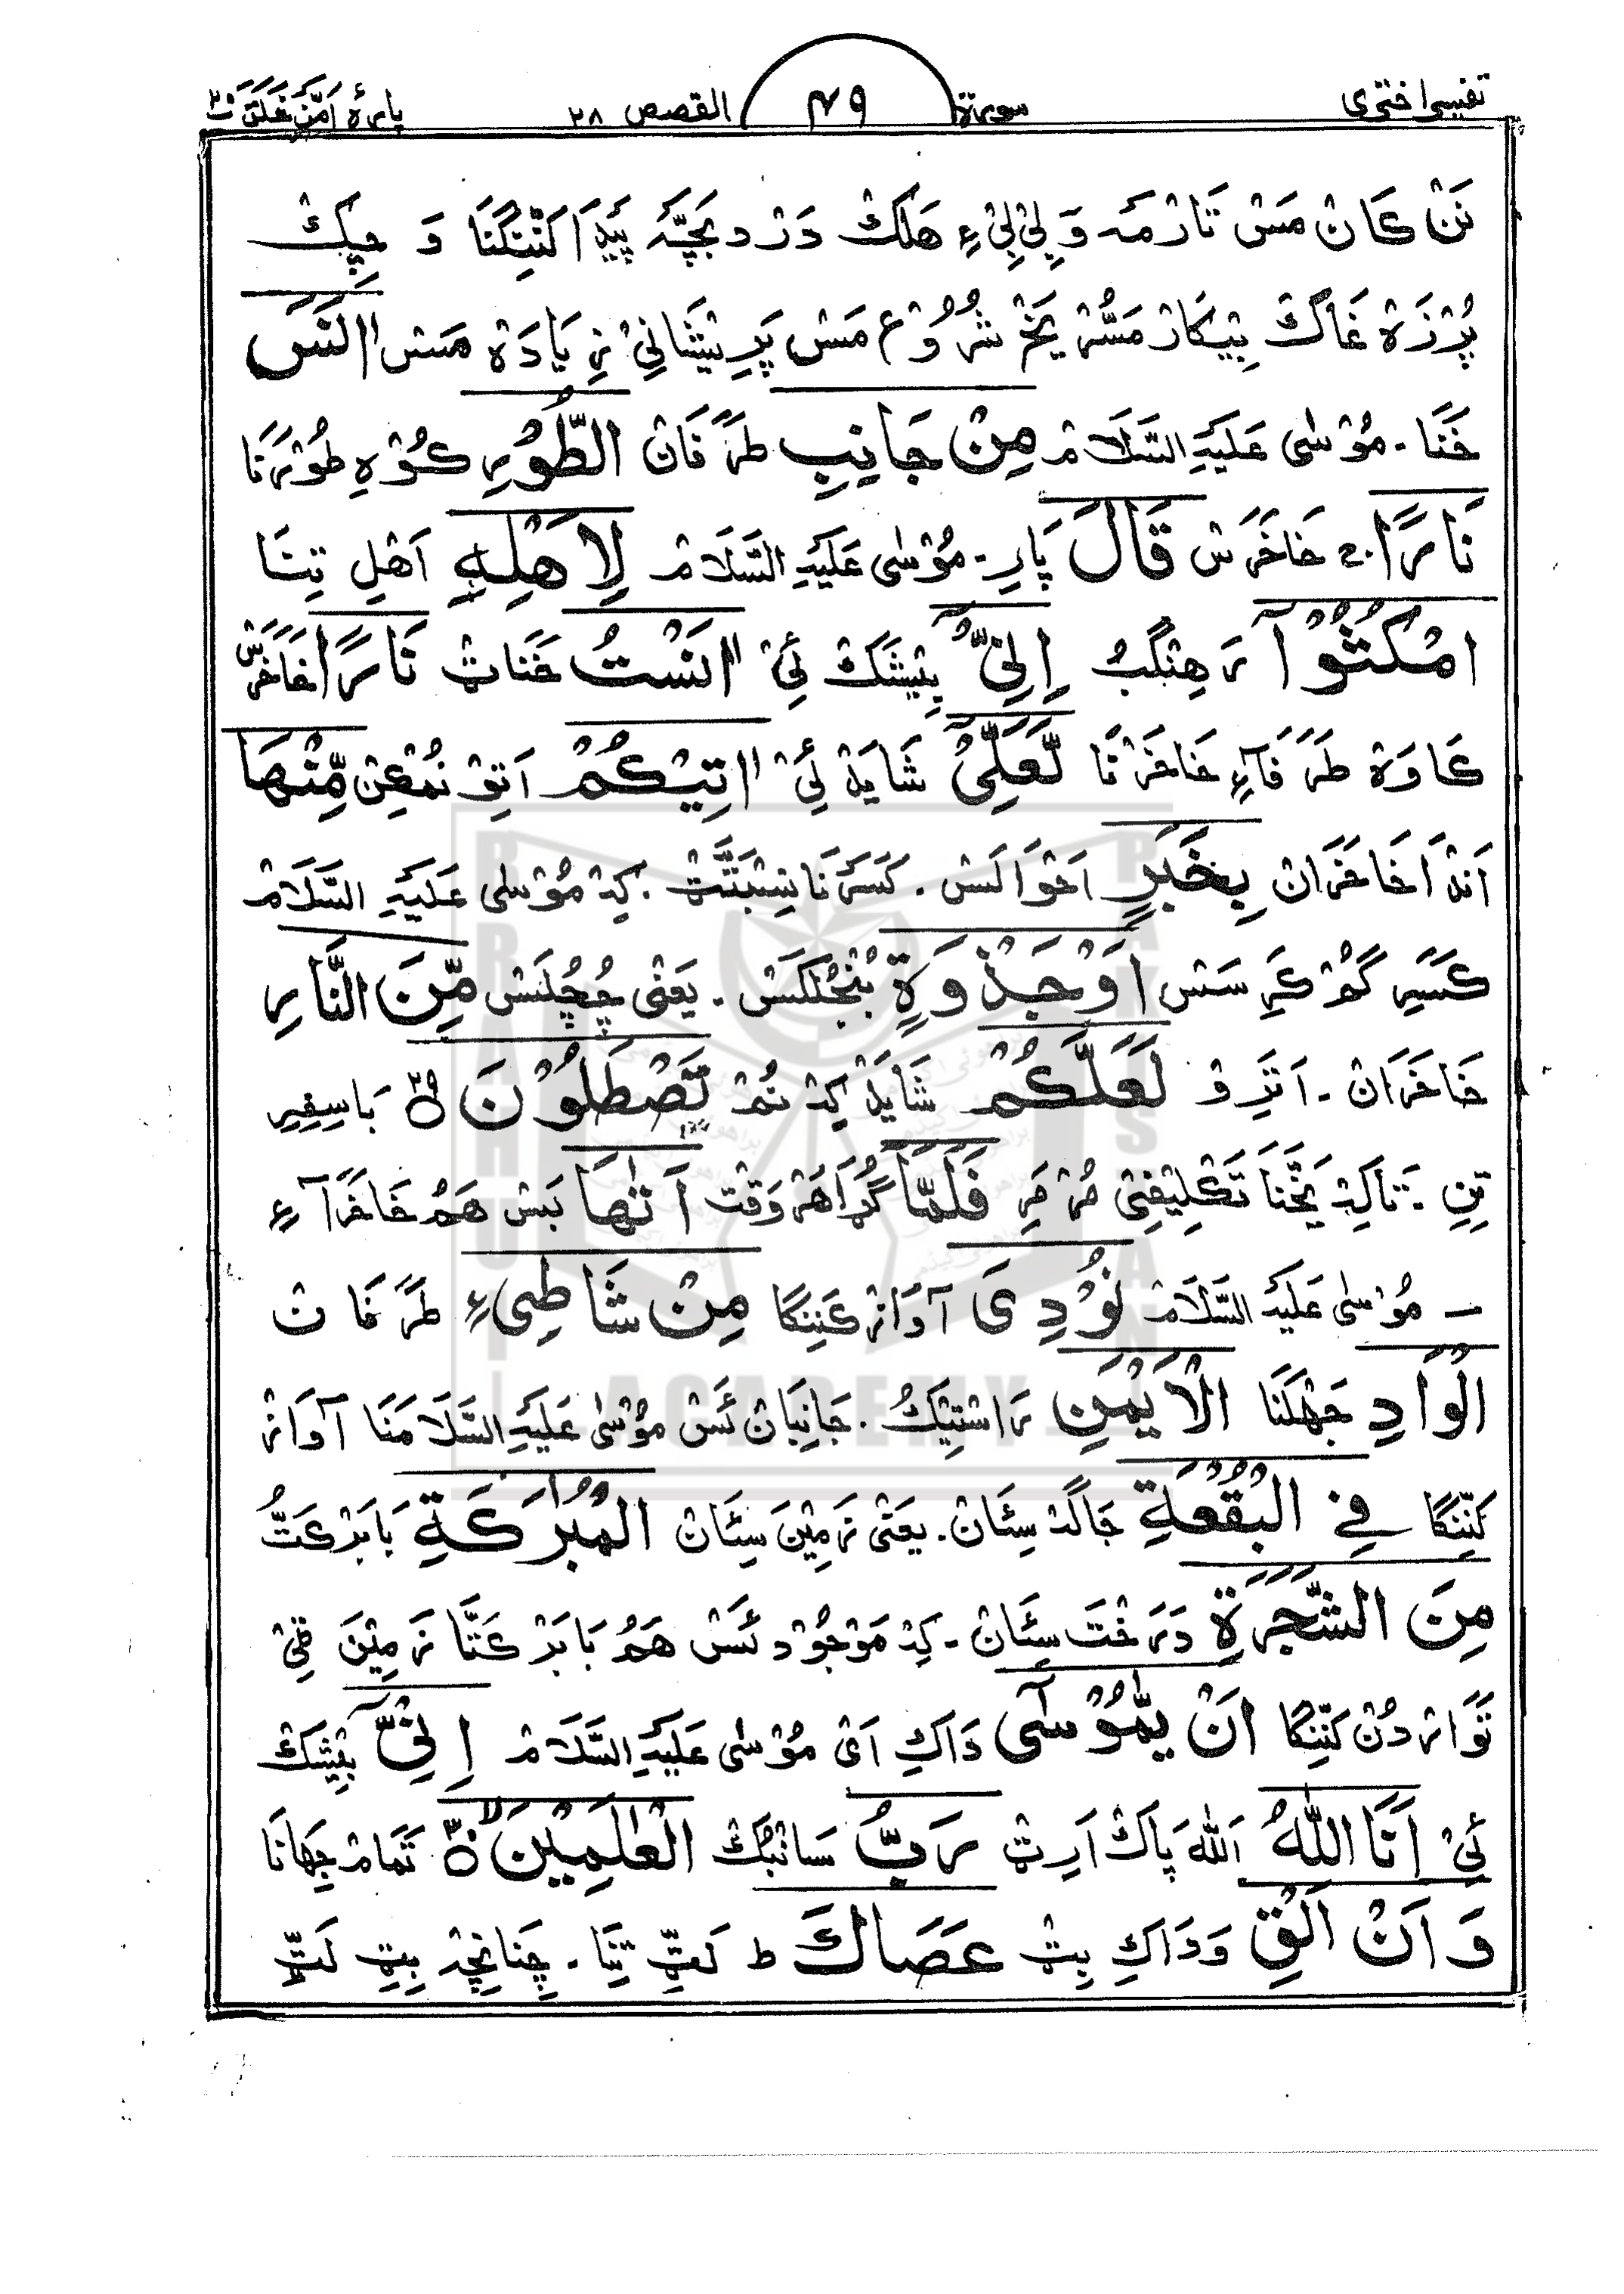 تفسیر اختری سورة ۴۹ القصص ۲۸ پارۀ اَمَّنْ خَلَقَ ۲۰
نَنْ كَانْ مَسْ تَارْمَہ وَ لِیْ بِیْ ءِ هَلَكْ دَرْد بَچَّہ پَیْدَا كَنِّنْگنَا وَ چِپِكْ
پُرْزَہ غَاكْ بِیْكَارْ مَسُّرْ یَخْ شُرُوْع مَسْ پَرِیْشَانِیْ زِیَادَہْ مَسْ اٰنَسَ
خَنَا ۔ مُوْسٰی عَلَیْہِ السَّلَامْ مِنْ جَانِبِ طَرَفَانْ الطُّوْرِ كُوْہِ طُوْرَنَا
نَارًا ج خَاخَرَسْ قَالَ پَارِ ۔ مُوْسٰی عَلَیْہِ السَّلَامْ لِاَهْلِہِ اَهْلِ تِنَا
امْكُثُوْآ رَهِنْگبُ اِنِّیْ بِیْشَكْ اِیْ اٰنَسْتُ خَنَاٹْ نَارًا خَاخَرَسْ
كَاوَہْ طَرَفَآءِ خَاخَرْنَا لَّعَلِّیْ شَایَدْ اِیْ اٰتِیْكُمْ اَتِوْ نُمْكِنْ مِّنْهَا
اَنْدَا خَاخَرَانْ بِخَبَرٍ اَحْوَالَسْ ۔ كَسَرَنَا نِسْبَتَّتْ ۔ كِہْ مُوْسٰی عَلَیْہِ السَّلَامْ
كَسَرِ گُمْ كَرِسَسْ اَوْ جَذْوَةٍ بُنْجُلَكَسْ ۔ یَعْنٰی چُچُلَسْ مِّنَ النَّارِ
خَاخَرَانْ ۔ اَتْرِفْ لَعَلَّكُمْ شَایَدْ كِہْ نُمْ تَصْطَلُوْنَ ۝۲۹ بَاسِفِرِ
تِنِ ۔ تَاكِہْ یَخْنَا تَكْلِیْفِیْ مُرْ مَرِ فَلَمَّآ گُڑَا هَرْ وَقْت اَتٰهَا بَسْ هَمُ خَاخَرَآءِ
ـ مُوْسٰی عَلَیْہِ السَّلَامْ نُوْدِیَ آوَازْ كَنِنگَا مِنْ شَاطِیءِ طَرَفَانْ
الْوَادِ جَهْلَنَا الْاَیْمَنِ رَاسْتِیْكُ ۔ جَانِبَانْ ئَسْ مُوْسٰی عَلَیْہِ السَّلَامَنَا آوَازْ
كَنِّنگَا فِی الْبُقْعَةِ جَاگَہْ سِئَانْ ۔ یَعْنٰی زَمِیْنَ سِئَانْ الْمُبٰرَكَةِ بَابَرْكَتُّ
مِنَ الشَّجَرَةِ دَرَخْتَ سِئَانْ ۔ كِہْ مَوْجُوْد ئَسْ هَمُ بَابَرْكَتَّا زَمِیْنَ ٹِیْ
تَوَازْ دُنْ كَنِّنگَا اَنْ یّٰمُوْسٰٓی دَاكِ اَیْ مُوْسٰی عَلَیْہِ السَّلَامْ اِنِّیْٓ بِیْشَكْ
اِیْ اَنَا اللّٰهُ اَللّٰہَ پَاكْ اَرِٹْ رَبُّ سَانْبُكْ الْعٰلَمِیْنَ ۝۳۰ لا تَمَامْ جِهَانَا
وَ اَنْ اَلْقِ وَ دَاكِ بِٹ عَصَاكَ ط لَٹِّ تِنَا ۔ چَنَانِچْہ بِٹِ لَٹِّ